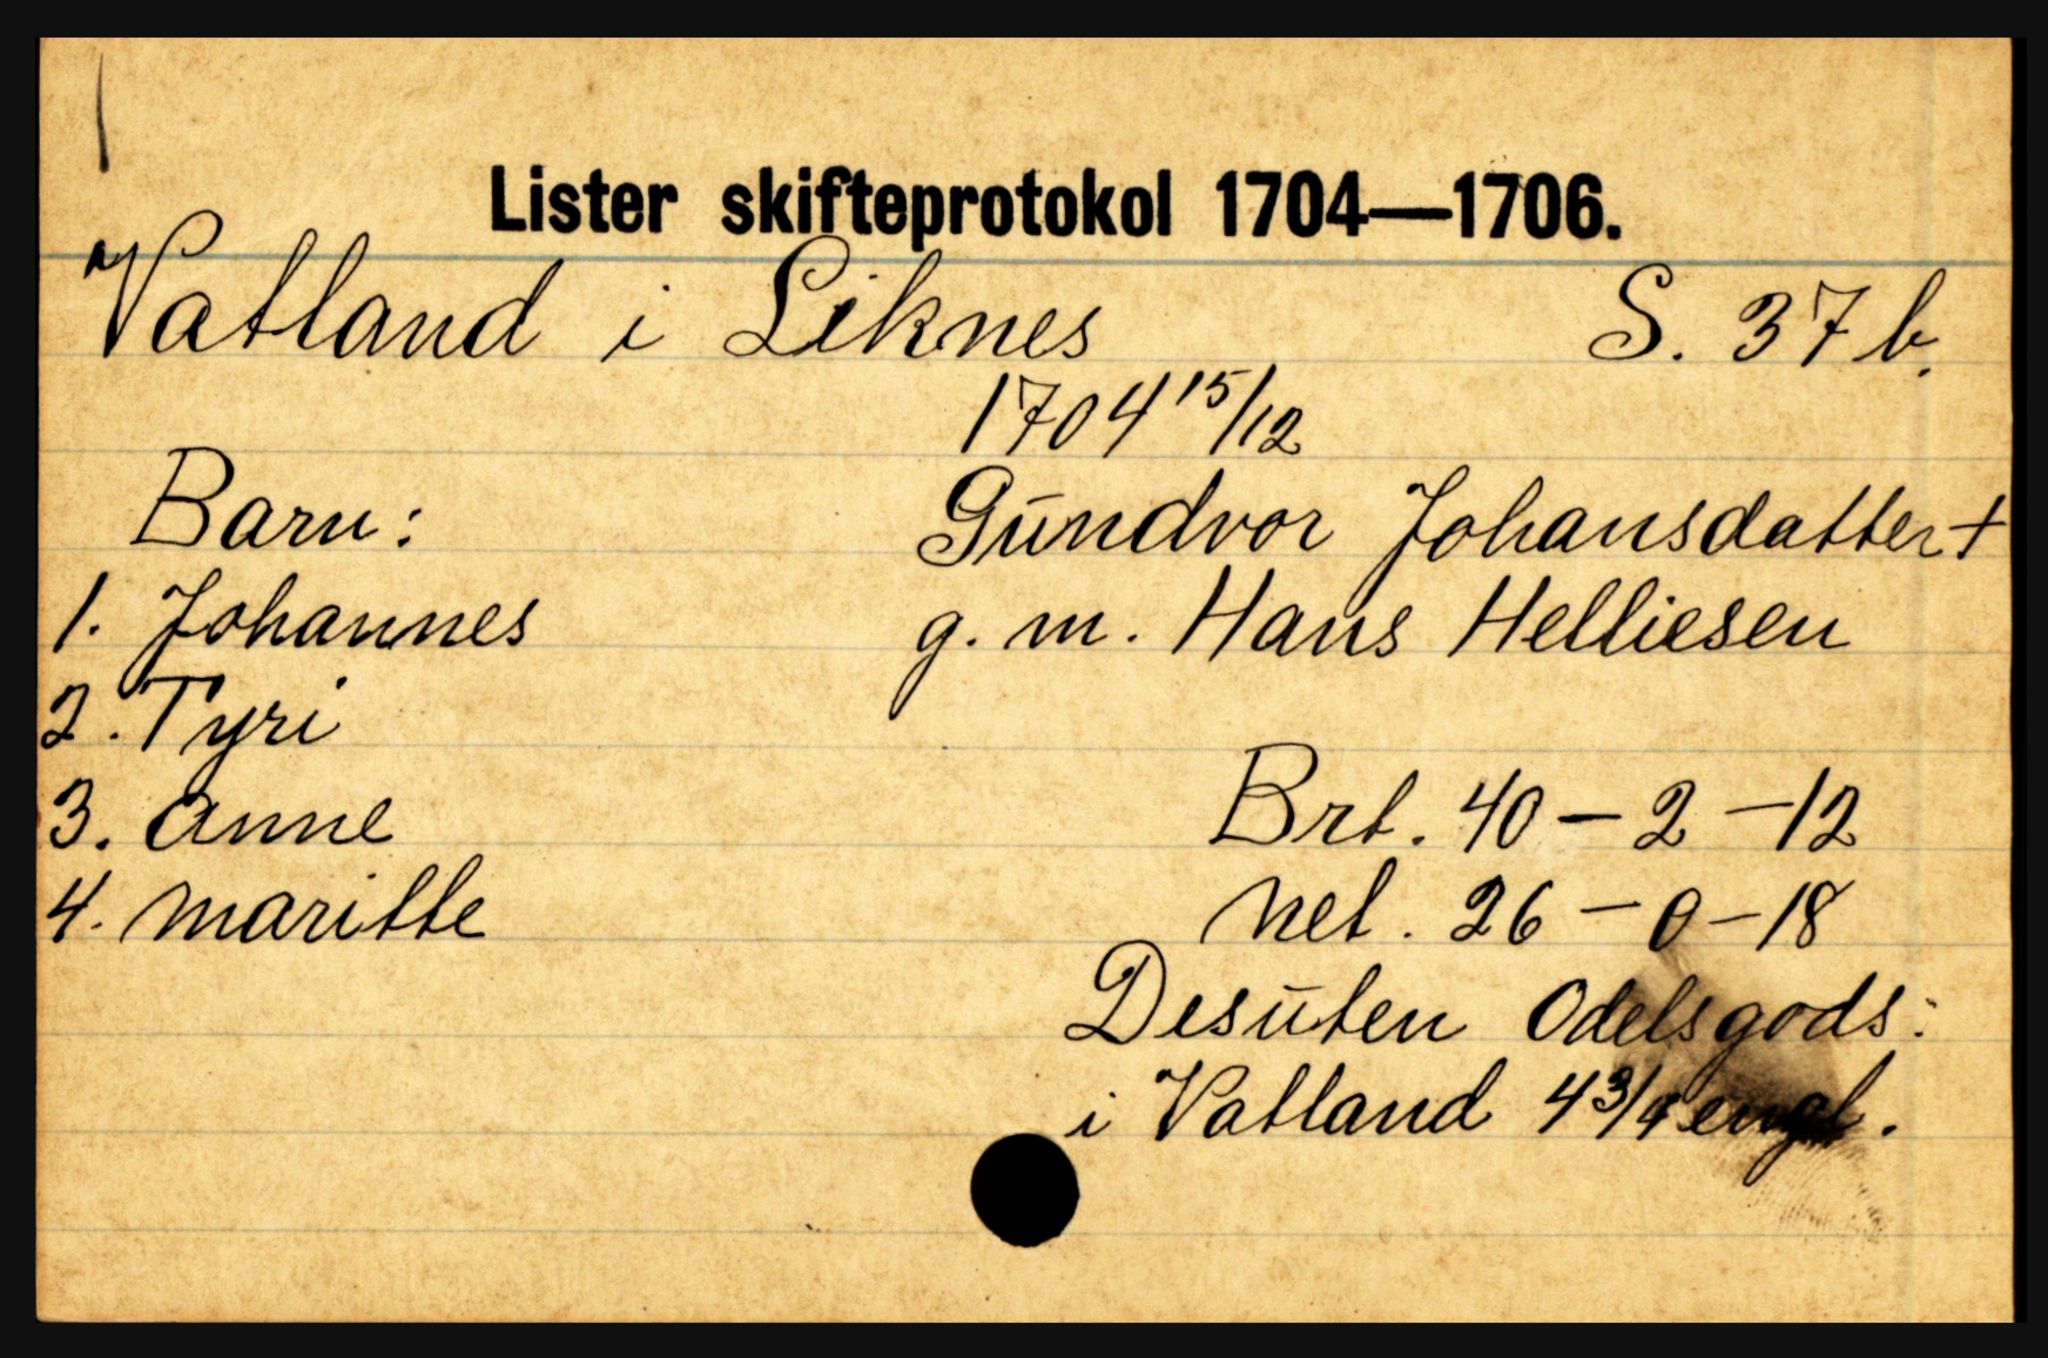 Lister skifteprotokol 1704—1706.
Vatland i Liknes S. 37 b.
1704 15/12
Barn:
Gundvor Johansdatter +
1. Johannes
g. m. Hans Helliesen
2. Tyri
3. Anne
Brt. 40 — 2 — 12
4. Maritte
Net. 26 — 0 — 18
Desuten Odelsgods:
i Vatland 4 3/4 engl.